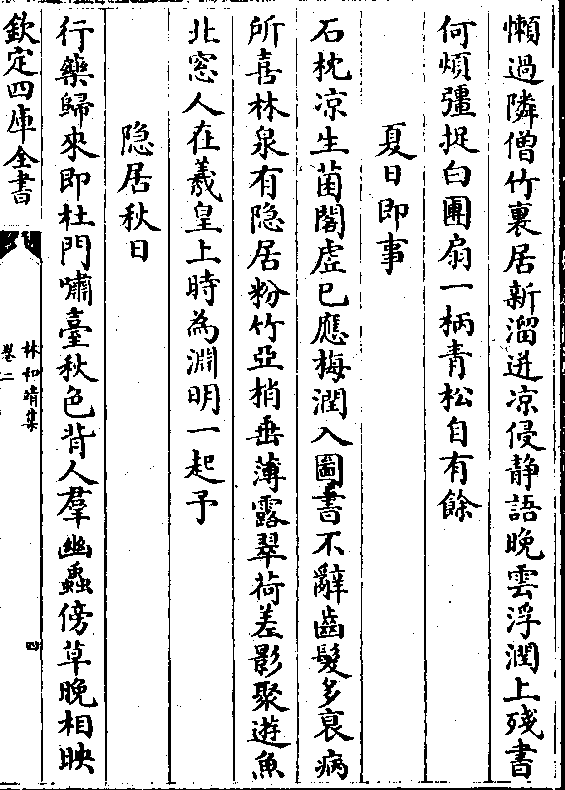 懶過隣僧竹裏居新溜迸凉侵静語晚雲浮潤上殘書
何煩彊捉白團扇一柄青松自有餘
夏日即事
石枕凉生菌閣虛已應梅潤入圖書不辭齒髮多衰病
所喜林泉有隱居粉竹亞梢垂薄露翠荷差影聚遊魚
北窓人在羲皇上時為淵明一起予
隱居秋日
行藥歸來即杜門嘯臺秋色背人羣幽蟲傍草晚相映
欽定四庫全書
林和靖集
卷二
四